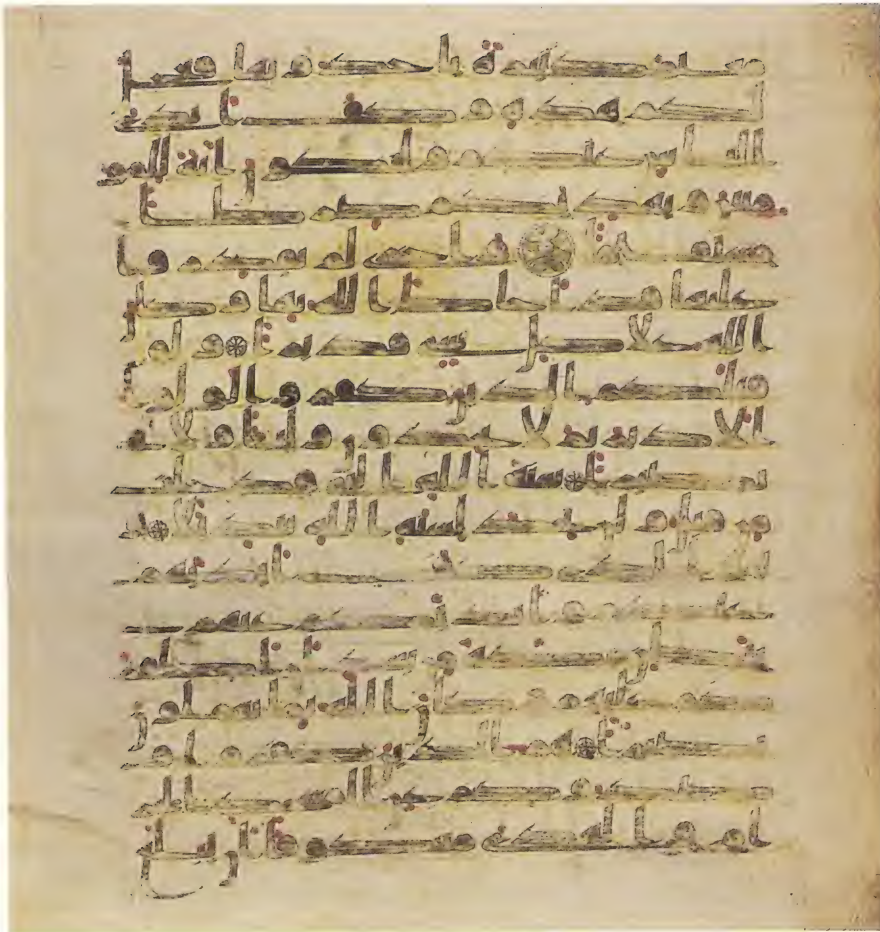 مغنم كثيرة تاخذونها فعجل
لكم هذه وكف ايدي
الناس عنكم ولتكون اية للمو
منين ويهديكم صرطا
مستقيما واخرى لم تقدروا
عليها قد احاط الله بها وكان
الله على كل شيء قديرا ولو
قتلكم الذين كفروا لولوا
الادبر ثم لا يجدون وليا ولا نـ
ـصيرا سنة الله التي قد خلت
من قبل ولن تجد لسنة الله تبديلا و
هو الذي كف ايديهم
عنكم وايديكم عنهم
ببطن مكة من بعد ان اظفر
كم عليهم وكان الله بما تعملون
بصيرا هم الذين كفروا و
صدوكم عن المسجد الحر
ام والهدي معكوفا ان يبلغ